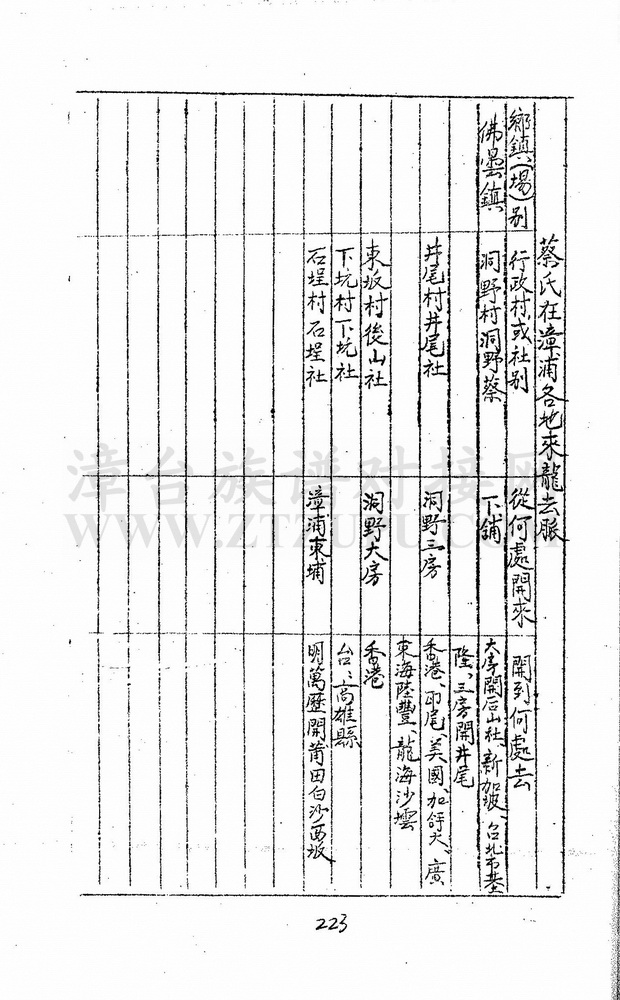 蔡氏在漳浦各地來龍去脈
鄉鎮(場)别
行政村或社别
從何處開來
開到何處去
佛曇鎮
洞野村洞野蔡
下舖
大房開后山社、新加坡、台北市基
隆、三房開井尾
井尾村井尾社
洞野三房
香港、印尾、美國、加拿大、廣
東海陸豐、龍海沙壇
東坂村後山社
洞野大房
香港
下坑村下坑社
台:高雄縣
石埕村石埕社
漳浦東埔
明萬歷開莆田白沙西坂
223
漳台族谱对接网